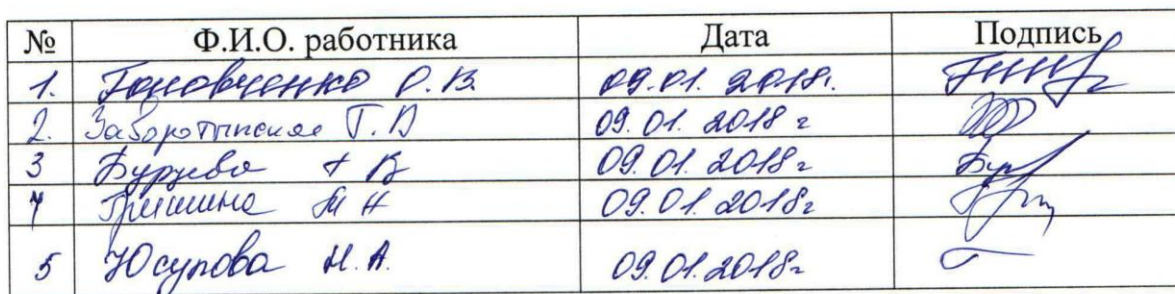 № Ф.И.О. работника Дата Подпись
1. Головченко О.В. 09.01.2018г.
2. Заворотынская Т.В 09.01.2018 г
3 Бурцева В 09.01.2018 г
4 Гришина М Н 09.01.2018г
5 Юсупова Н.А. 09.01.2018г